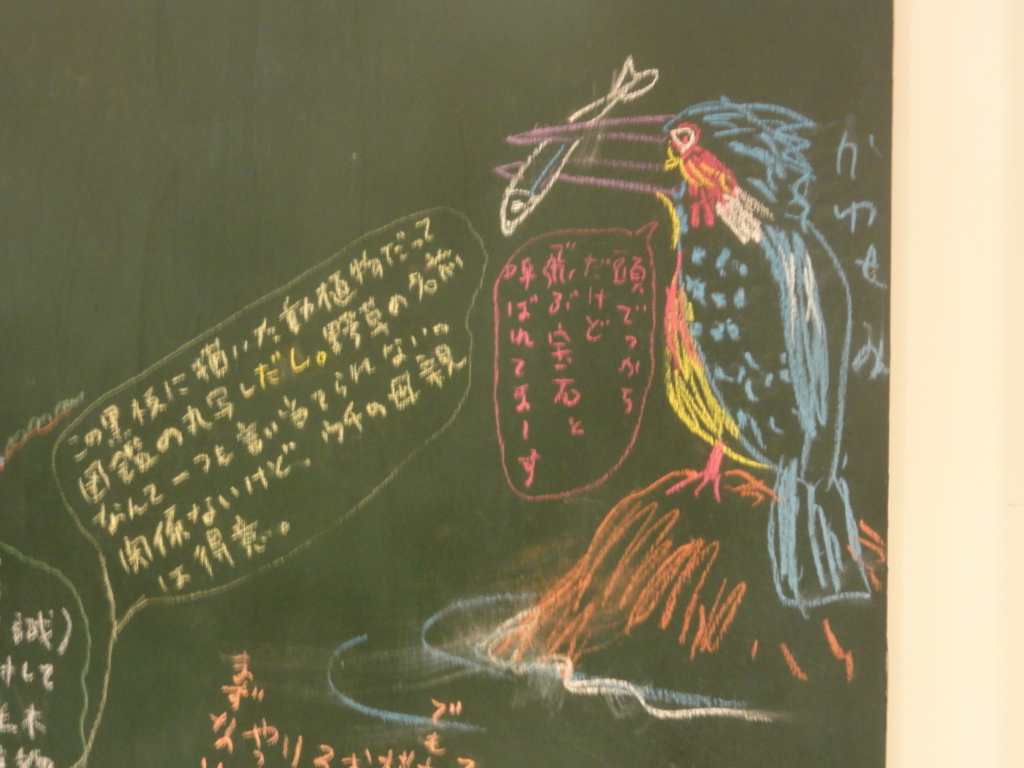 かわせみ
頭でっかち
だけど
飛ぶ宝石と
呼ばれてまーす
この黒板に描いた動植物だって
図鑑の丸写しだし。野草の名前
なんて一つも言い当てられないの
関係ないけど、ウチの母親
は得意。
識)
対して
土木
まず
やり
でも